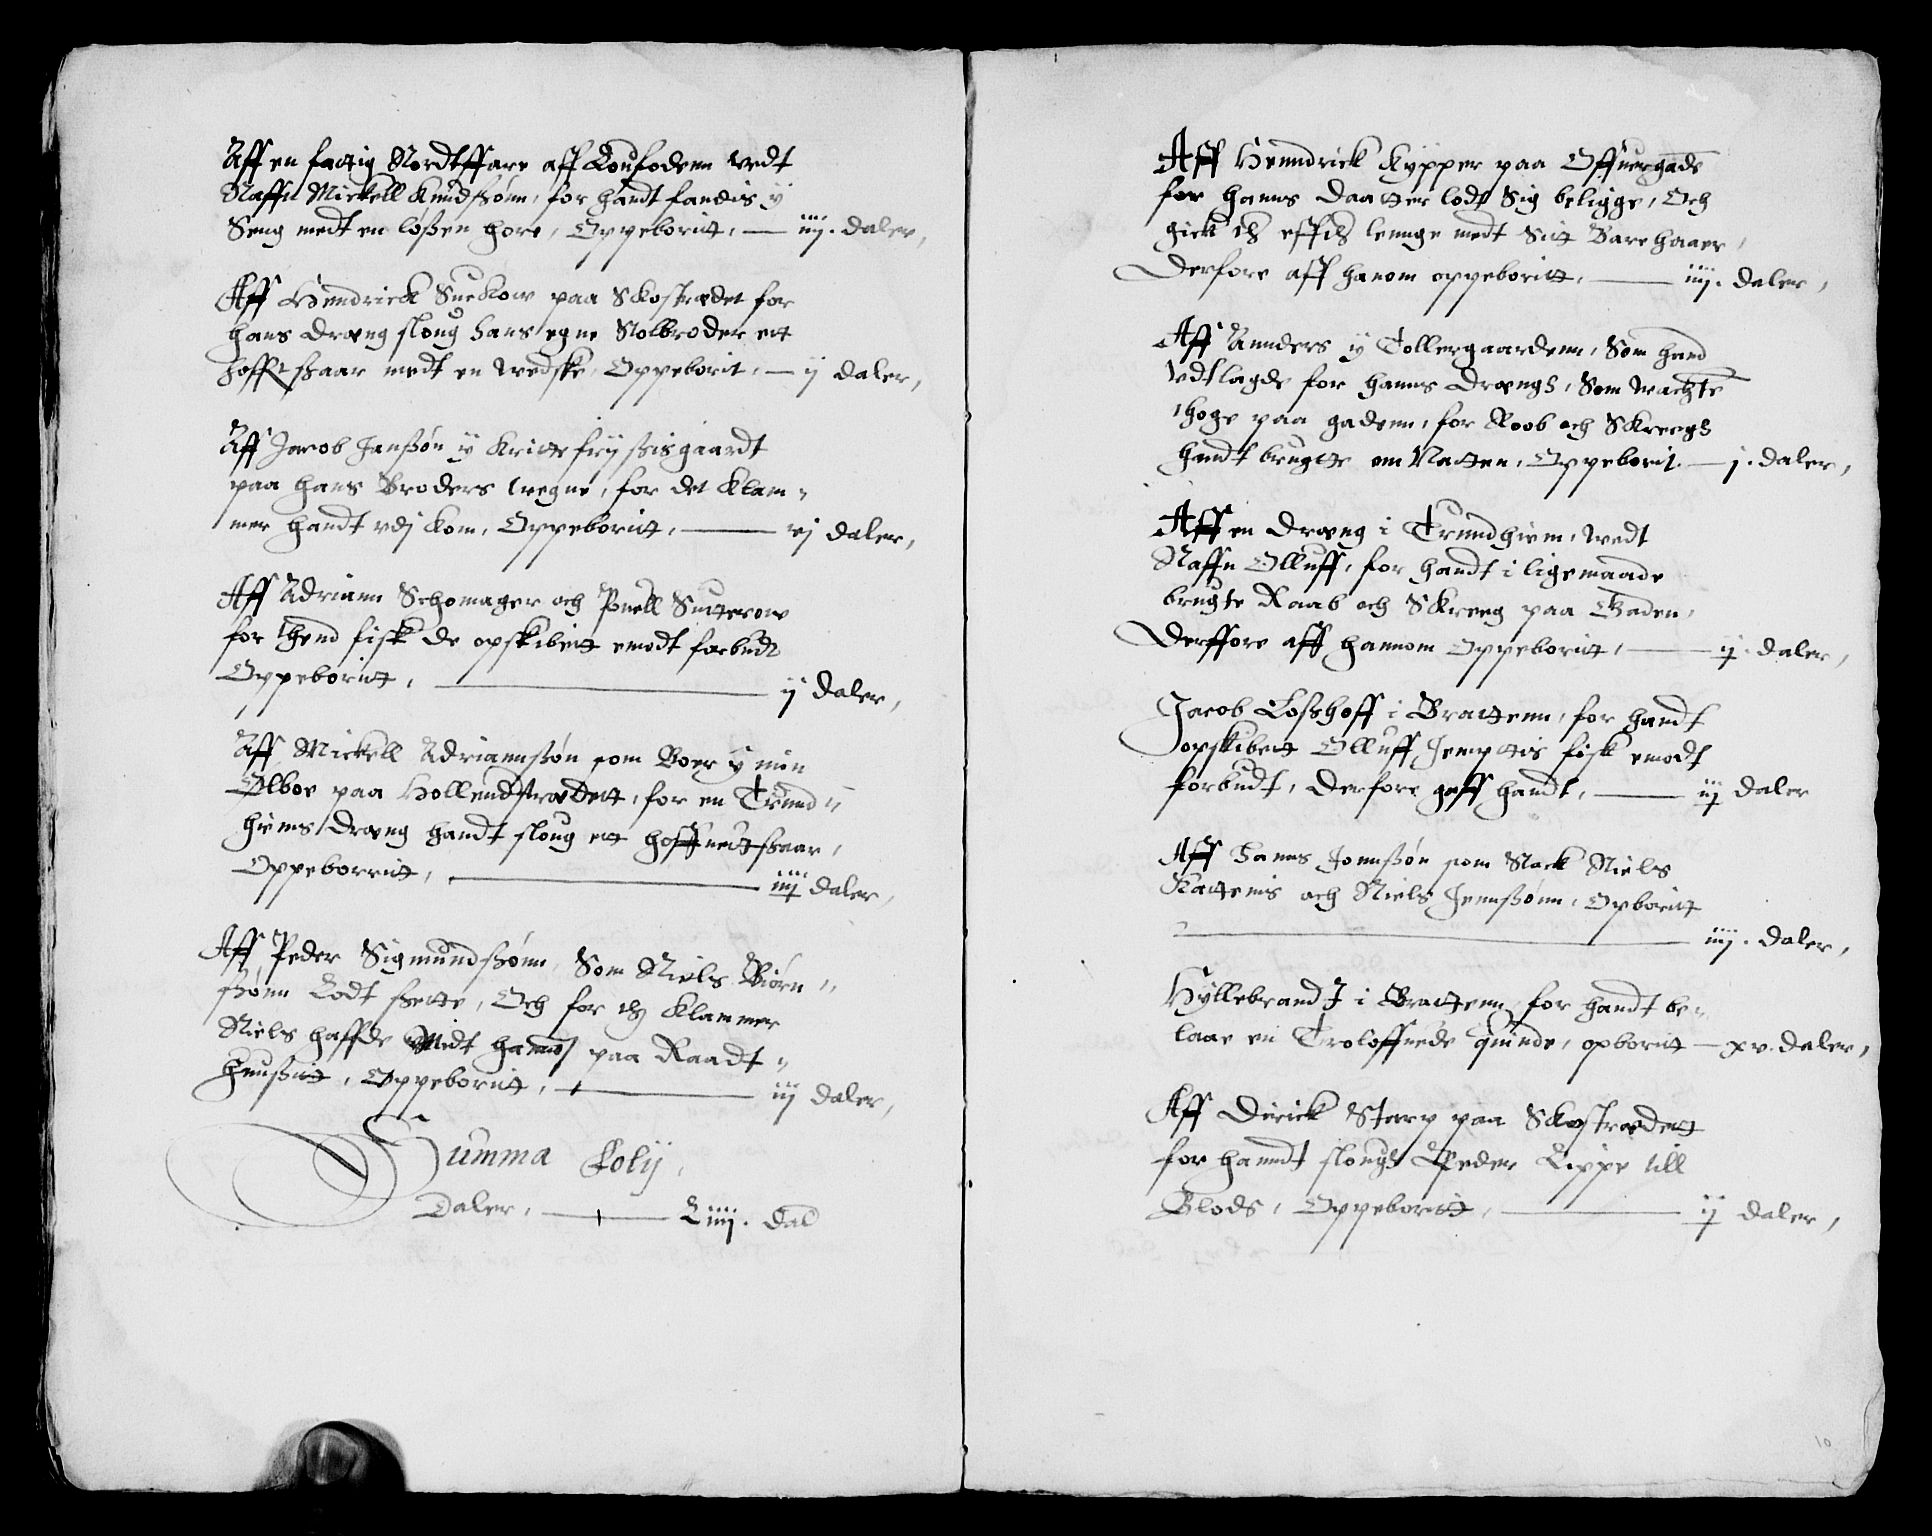 Aff en fattig Nordtffare aff Loufodenn vedt
Naffn Mickell Knudssønn, for handt fandis y
Seng medt en løssen hore, Oppeboritt, — iiij. daler,
Aff Hendrick Suckow paa Skostrædet for
hans dræng sloug hans egne Stolbroder ett
hoffetssaar medt en wedske, Oppeborit, — ij daler,
Aff Jacob Janssøn y gaardt
paa hans Broders wegne, for det Klam„
mer handt vdj kom, Oppeboritt, — vj daler,
Aff Adriann Schomager och Pouell Sutterow
for thend fisk de opskibett emodt forbudt
Oppeboritt, — ij daler,
Aff Mickell Adrianssøn som Boer y min
Olboe paa Hollendstrædett, for en Trund„
hiems dræng handt sloug ett hoffuetssaar,
Oppeborritt, — iiij daler,
Aff Peder Sigmundssønn, Som Niels Biørn„
ssønn Lodt ssette, Och for th Klammer
Niels haffde Medt hannos paa Raadt„
Huussitt, Oppeboritt, — iij daler,
Summa Lolij,
Daler, — Liiij. dal
Aff Henndrick Kypper paa Offuergade
for hanns daatter lodt Sig beligge, Och
gick th effth lennge medt Sit Bare haaer,
Derfore aff hanom oppeboritt, — iiij. daler,
Aff Annders y Tollergaardenn, Som hand
vdtlagde for hanns drængh, Som wachte
thoge paa gadenn, for Roob och Skreegh
handt brugtte om Natten, Oppeborit. — j. daler,
Aff en dræng i Trundhiem, wedt
Naffn Olluff, for handt i ligemaade
brugte Raab och Skreeg paa Gaden,
Derffore aff hannom Oppeboritt, — ij. daler,
Jacob Losshoff i Brattenn, for handt
opskibett Olluff Jemptis fisk emodt
forbudt, derfore gaff handt, — iij daler
Aff Hanns Jonnssøn som Stack Niels
Kattenis och Niels Jennssønn, Opboritt
— iiij. daler,
Hyllebrandt i Brattenn, for handt be„
laae en Troloffuede quinde, opboritt — xv. daler,
Aff Dirick Sterp paa Skostrædett
for hanndt slough Peder Lippe till
Blods, Oppeboritt, — ij daler,
10